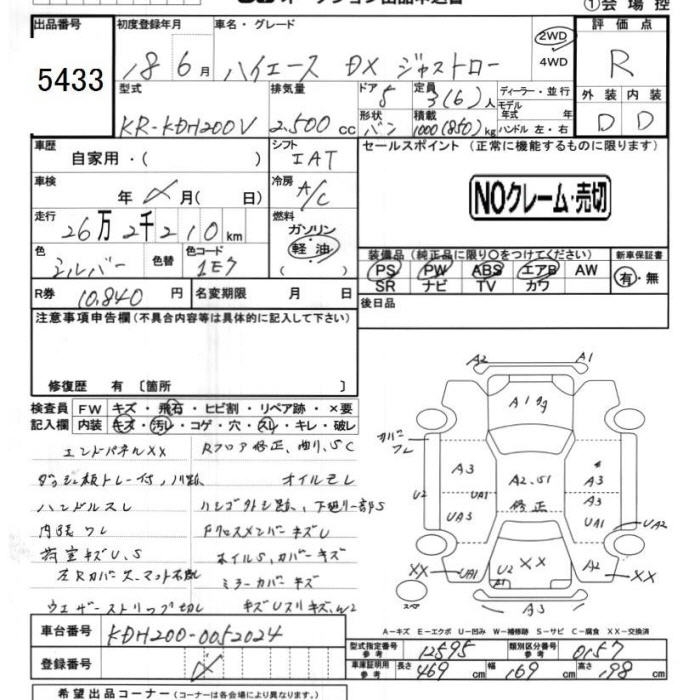 ①会場控
出品番号 初度登録年月 車名・グレード 2WD 4WD 評価点
5433 18 6月 ハイエース DX ジャストロー R
型式 排気量 ドア 5 定員 3(6)人 ディーラー・並行 外装 内装
KR-KDH200V 2.500cc 形状 バン 積載 1000(850)kg モデル年式 年 ハンドル 左・右 D D
車歴 自家用・( ) シフト IAT セールスポイント (正常に機能するものに限ります)
車検 年 月( 日) 冷房 A/C NOクレーム・売切
走行 26万2千210km 燃料 ガソリン 軽油 ( )
色 シルバー 色替 色コード 1E7 装備品(純正品に限り○をつけてください) 新車保証書
PS PW ABS エアB AW 有・無
SR ナビ TV カワ
R券 10,840円 名変期限 月 日 後日品
注意事項申告欄(不具合内容等は具体的に記入して下さい)
修復歴 有 [箇所 ]
検査員 FW キズ・飛石・ヒビ割・リペア跡・×要
記入欄 内装 キズ・汚レ・コゲ・穴・スレ・キレ・破レ
エンドパネルXX Rフロア修正、曲り、SC
ダッシュ板トレー付、ノリ跡 オイルモレ
ハンドルスレ ハシゴ外シ跡、下廻リ一部S
内張ワレ FクロスメンバーキズU
荷室キズU、S ホイルS、カバーキズ
左Rカバー欠 ミラーカバーキズ
ウェザーストリップ切レ キズUスリキズ、W2
A2 A1
A1 飛
カバーワレ
A3 A2、S1 A3
U2 UA1 A3
UA3 修正 UA1 UA2
XX UA1 U2 XX A2 XX
A1
スペア A3
A-キズ E-エクボ U-凹み W-補修跡 S-サビ C-腐食 XX-交換済
車台番号 KDH200-0052024
型式指定番号 参考 12595 類別区分番号 参考 0157
登録番号
車庫証明用 参考 長さ 469cm 幅 169cm 高さ 198cm
希望出品コーナー(コーナーは各会場により異なります。)